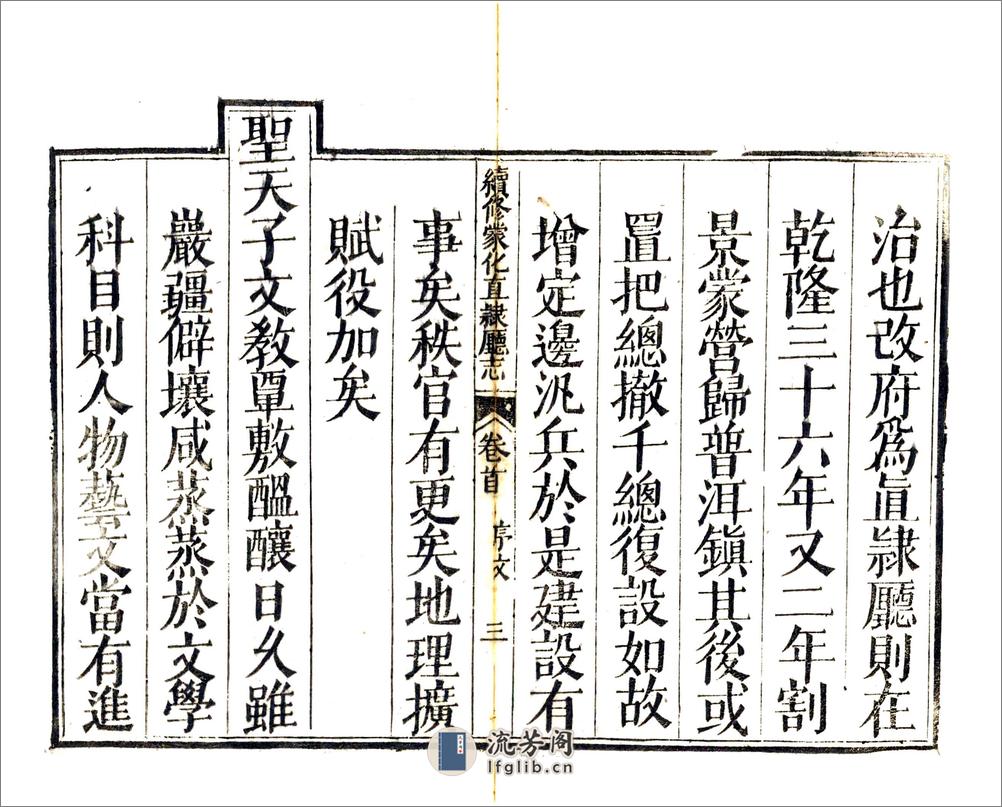 治也改府爲直隷廳則在
乾隆三十六年又二年割
景蒙營歸普洱鎮其後或
置把總撤千總復設如故
增定邊汛兵於是建設有
事矣秩官有更矣地理擴
賦役加矣
聖天子文教覃敷醞釀日久雖
巖疆僻壤咸蒸蒸於文學
科目則人物藝文當有進
續修蒙化直隷廳志
卷首
序文
三
流芳阁
lfglib.cn